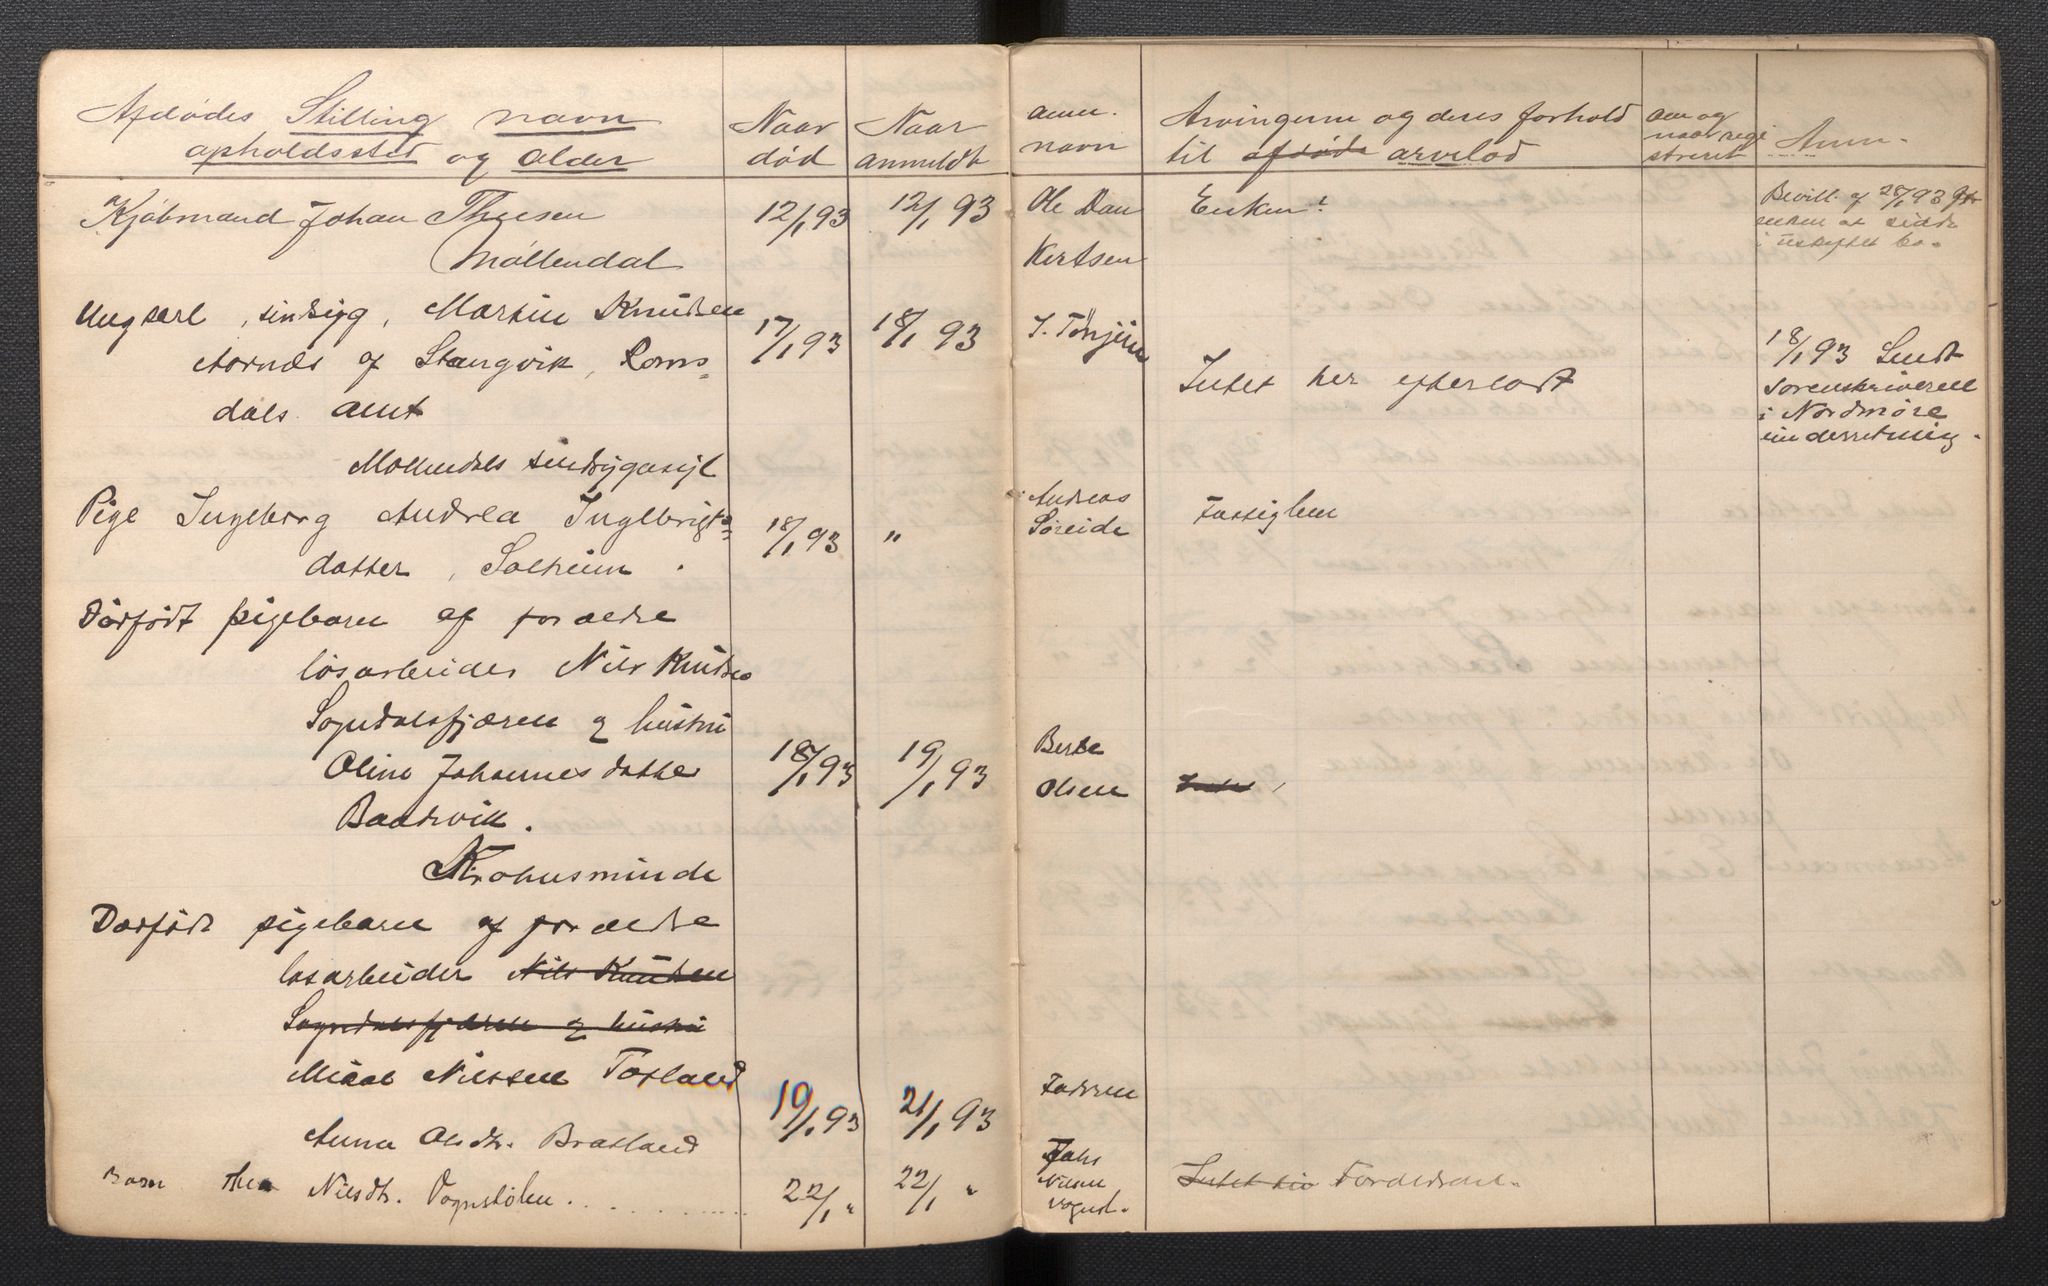 Afdødes Stilling navn
opholdssted og alder
Naar
død
Naar
anmeldt
anm.
navn
Arvingerne og deres forhold
til afdøde arvelod
om og
naar regi
streret
Anm.
Kjøbmand Johan Thuesen
Møllendal
12/1 93
12/1 93
Ole Dan
Kertsen
Enken?
Bevill. af 28/1 93 for
enken at sidde
i uskiftet bo.
Ungkarl, sindsyg, Martin Knudsen
Aarnæs af Stangvik, Roms
dals amt
Møllendals sindsygeasyl
17/1 93
18/1 93
J. Tønjum
Intet her efterladt
18/1 93 Sendt
Sorenskriveren
i Nordmøre
underretning.
Pige Ingeborg Andrea Ingebrigts
datter, Solheim.
18/1 93
"
Andreas
Søreide
Fattiglem
Dødfødt pigebarn af forældre
løsarbeider Nils Knudsen
Sogndalsfjæren og hustru
Oline Johannesdatter
Baadsvik.
Krohnsminde
18/1 93
19/1 93
Berte
Olsen
Intet
Dødfødt pigebarn af forældre
løsarbeider Nils Knudsen
Sogndalsfjæren og hustru
Mikal Nilssen Torland
Anna Olsdtr. Bratland
19/1 93
21/1 93
Faderen
Barn Thea Nilsdtr. Vognstølen.
22/1 "
22/1 "
Nilsen
Vognst.
Intet Forældrene.